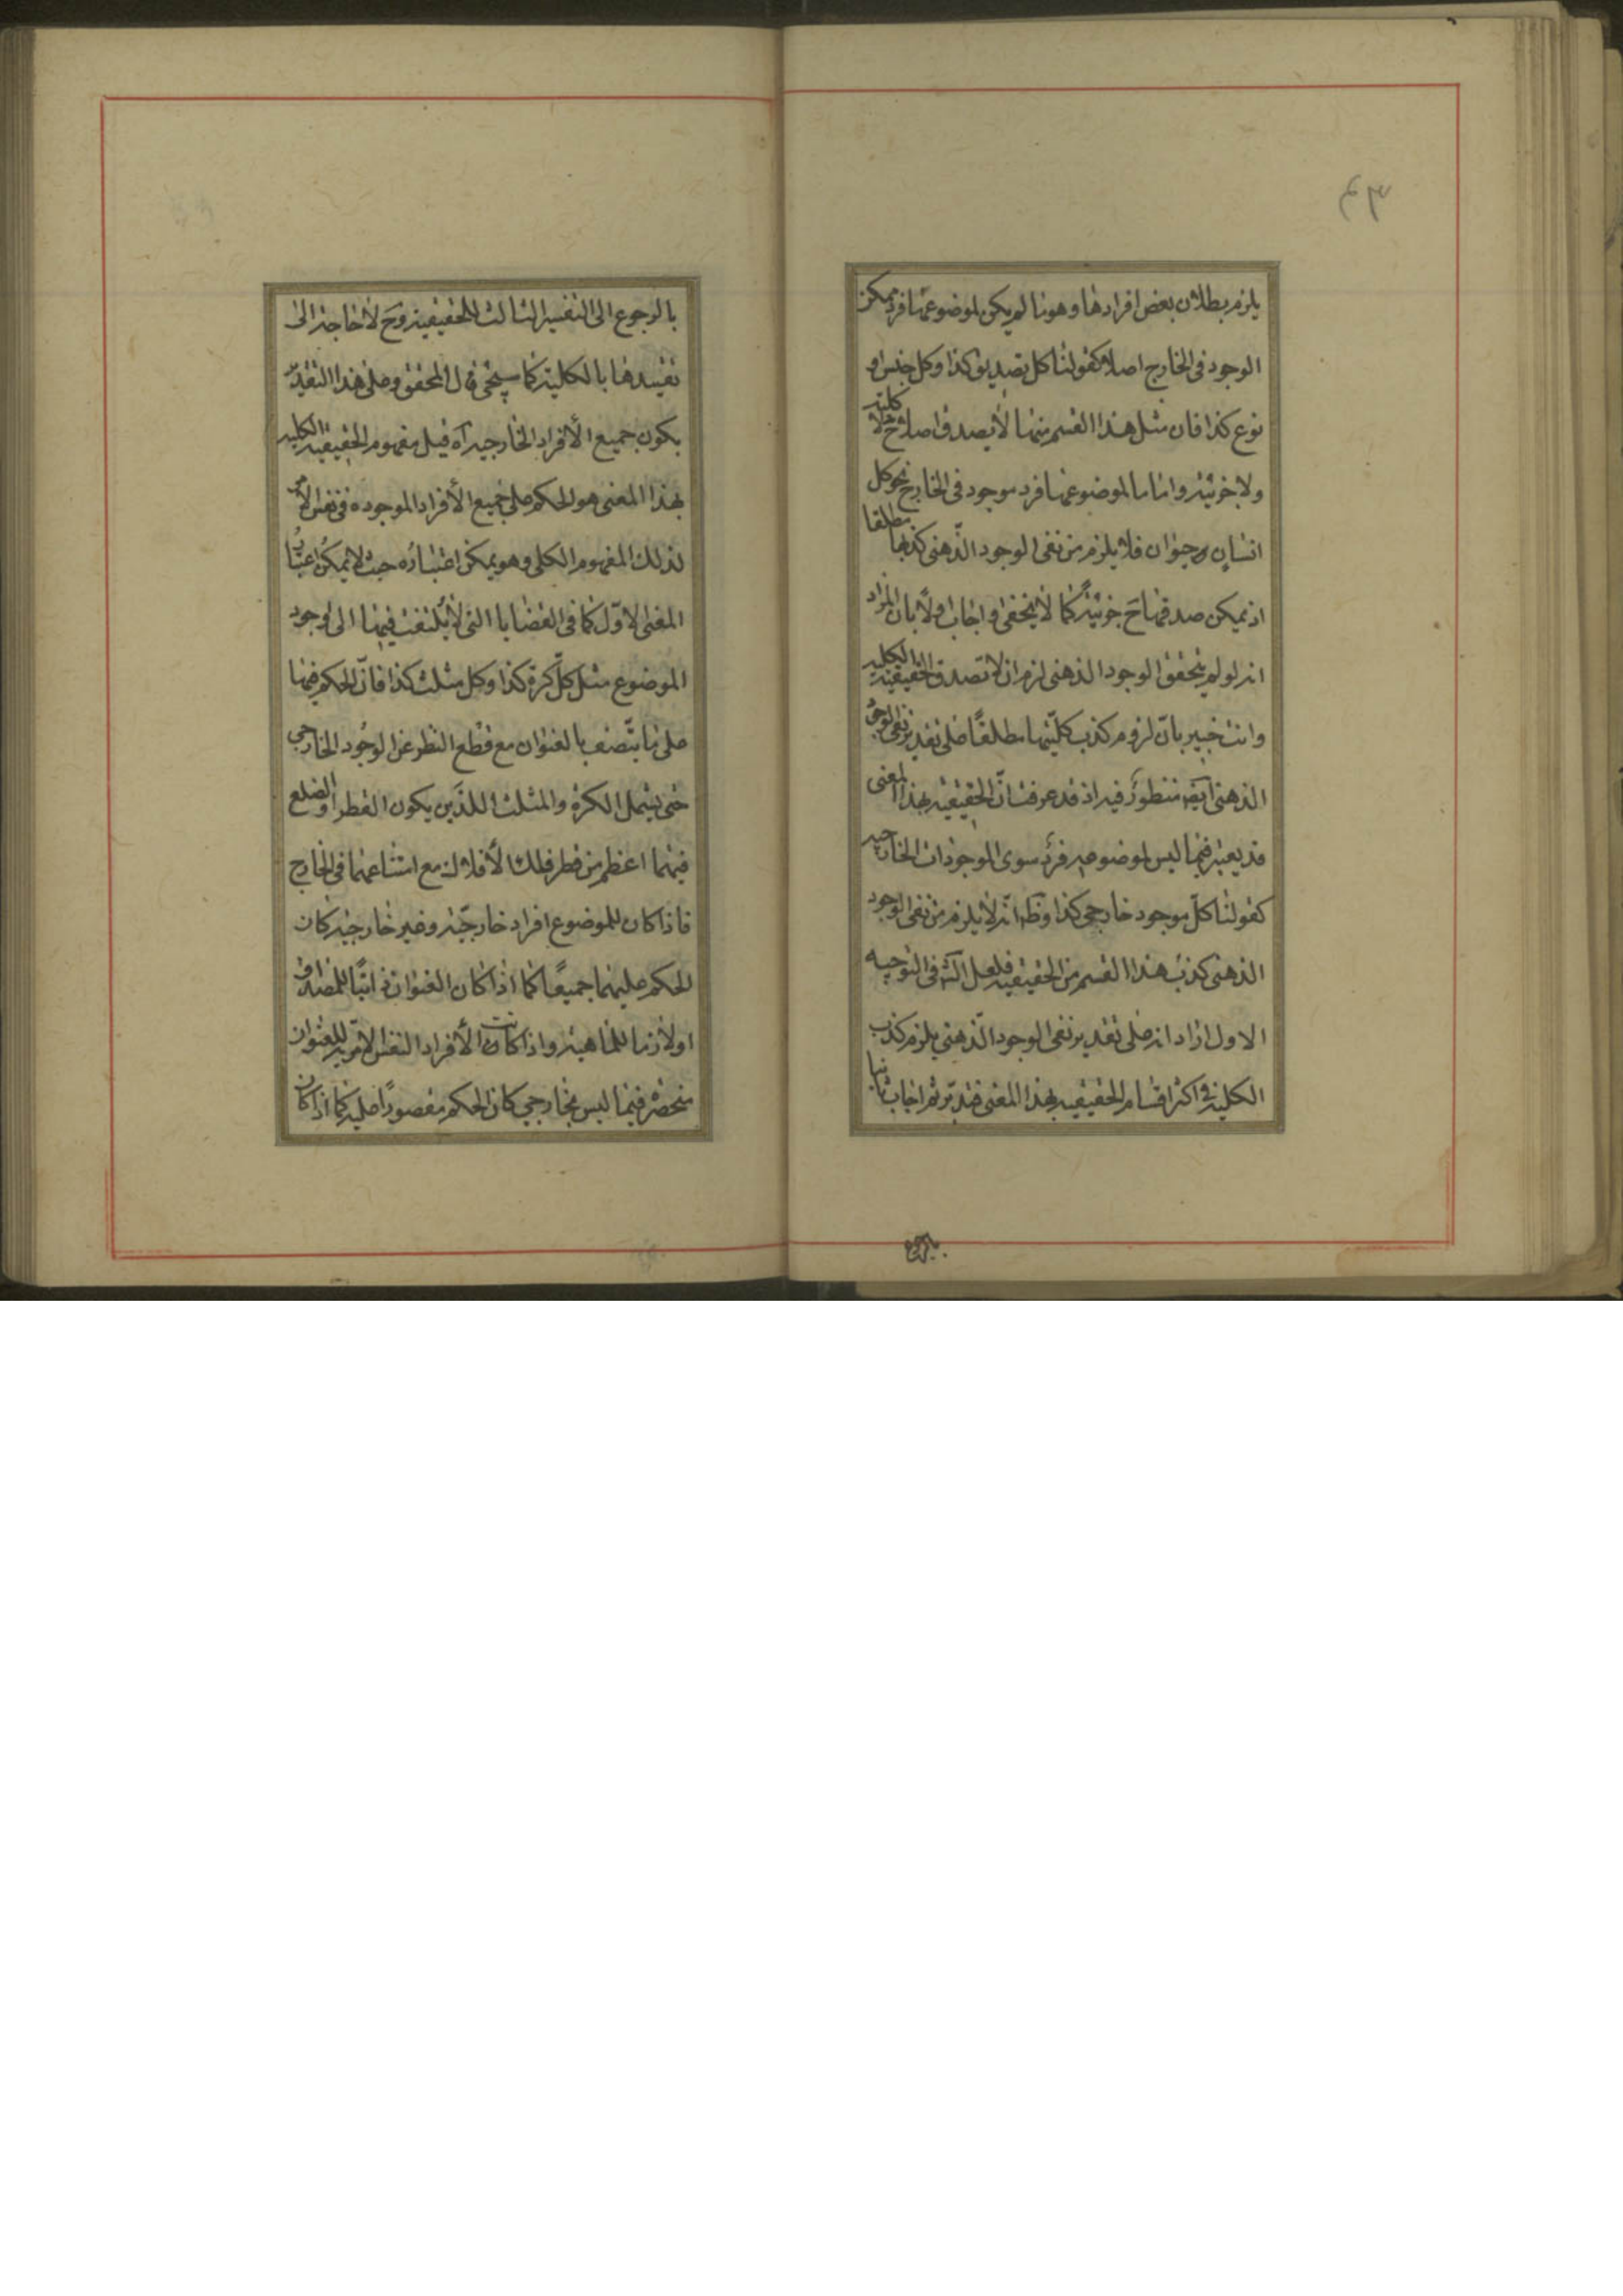 يلزم بطلان بعض افرادها وهو ما لم يكن لموضوعها فرد ممكن
الوجود فى الخارج اصلا كقولنا كل تصديق كذا وكل جنس او
نوع كذا فان مثل هذا القسم منها لا يصدق اصلا ح لا كلية
ولا جزئية واما ما لموضوعها فرد موجود فى الخارج نحو كل
انسان او حيوان فلا يلزم من نفى الوجود الذهنى كذبها مطلقا
اذ يمكن صدقها ح جزئية كما لا يخفى واجاب اولا بان المراد
انه لو لم يتحقق الوجود الذهنى لزم ان لا تصدق الحقيقية الكلية
وانت خبير بان لزوم كذب كليتها مطلقا على تقدير نفى الوجود
الذهنى ايضا منظور فيه اذ قد عرفت ان الحقيقية بهذا المعنى
قد يعتبر فيما ليس لموضوعه فرد سوى الموجودات الخارجية
كقولنا كل موجود خارجى كذا وظ انه لا يلزم من نفى الوجود
الذهنى كذب هذا القسم من الحقيقية فلعل الش فى التوجيه
الاول اراد انه على تقدير نفى الوجود الذهنى يلزم كذب
الكلية فى اكثر اقسام الحقيقية بهذا المعنى فتدبر ثم اجاب ثانيا
بالرجوع
بالرجوع الى التفسير الثالث للحقيقية وح لا حاجة الى
تقييدها بالكلية كما سيجئ قال المحقق وعلى هذا التقدير
يكون جميع الأفراد الخارجية آه قيل مفهوم الحقيقية الكلية
بهذا المعنى هو الحكم على جميع الأفراد الموجودة فى نفس الأمر
لذلك المفهوم الكلى وهو يمكن اعتباره حيث لا يمكن اعتبار
المعنى الاول كما فى القضايا التى لا يلتفت فيها الى وجود
الموضوع مثل كل كرة كذا وكل مثلث كذا فان الحكم فيها
على ما يتصف بالعنوان مع قطع النظر عن الوجود الخارجى
حتى يشمل الكرة والمثلث اللذين يكون القطر او الضلع
فيهما اعظم من قطر فلك الأفلاك مع امتناعهما فى الخارج
فاذا كان للموضوع افراد خارجية وغير خارجية كان
الحكم عليهما جميعًا كما اذا كان العنوان ذاتيًا للمصداق
او لازما للماهية واذا كانت الأفراد النفس الامرية للعنوان
منحصرة فيما ليس بخارجى كان الحكم مقصورًا عليه كما اذا كان